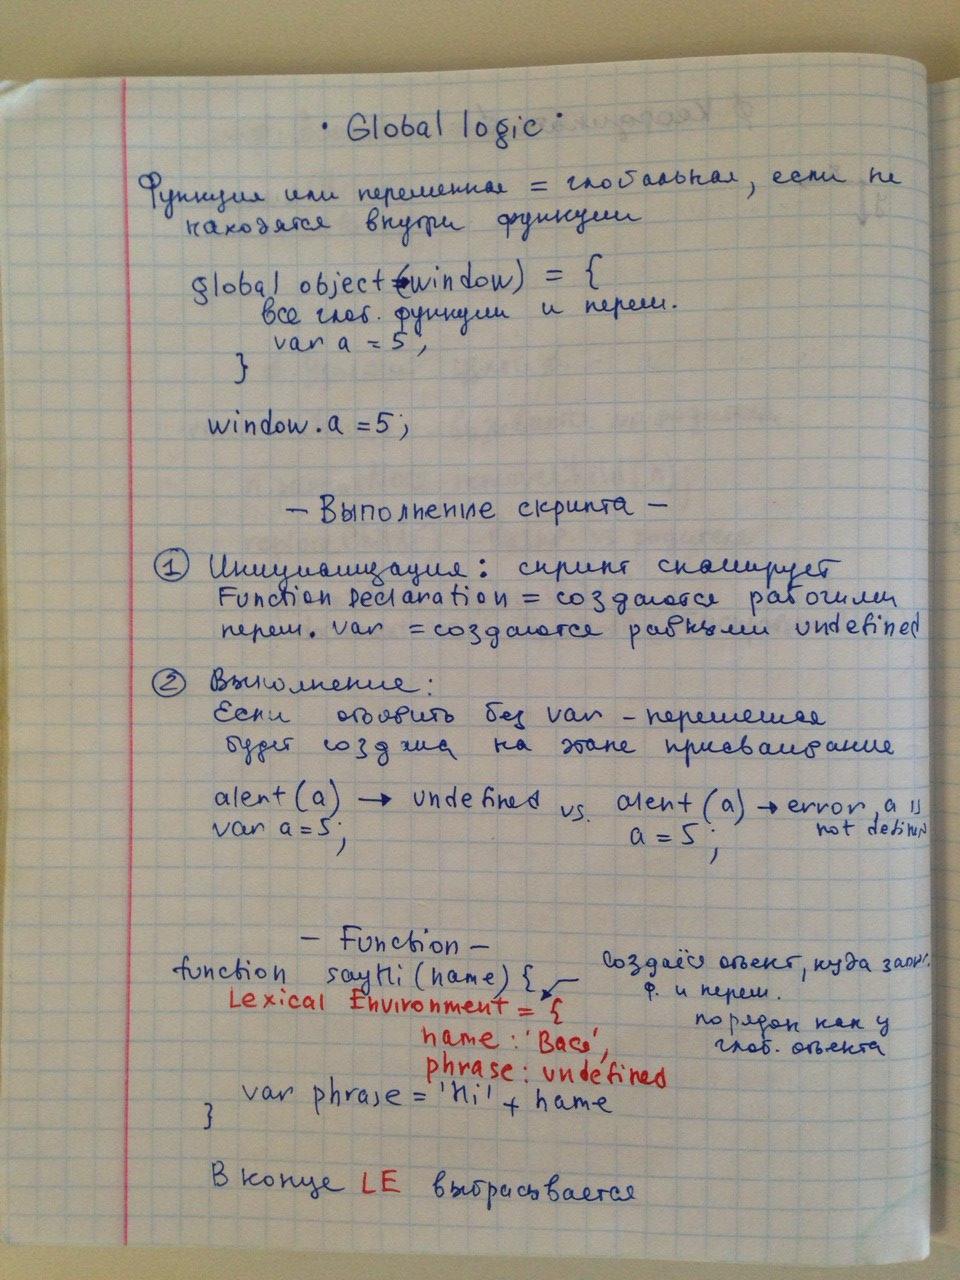 • Global logic •
Функция или переменная = глобальная, если не
находятся внутри функции
global object (window) = {
все глоб. функции и перем.
var a = 5;
}
window.a = 5;
— Выполнение скрипта —
① Инициализация: скрипт сканирует
Function Declaration = создаются рабочими
перем. var = создаются равными undefined
② Выполнение:
Если объявить без var - переменная
будет создана на этапе присваивание
alert(a) → undefined vs. alert(a) → error, a is
not defined
var a = 5; a = 5;
— Function —
function sayHi(name) {
Lexical Environment = {
name: 'Вася',
phrase: undefined
var phrase = 'Hi' + name
}
создаёся объект, куда запис.
ф. и перем.
порядок как у
глоб. объекта
В конце LE выбрасывается